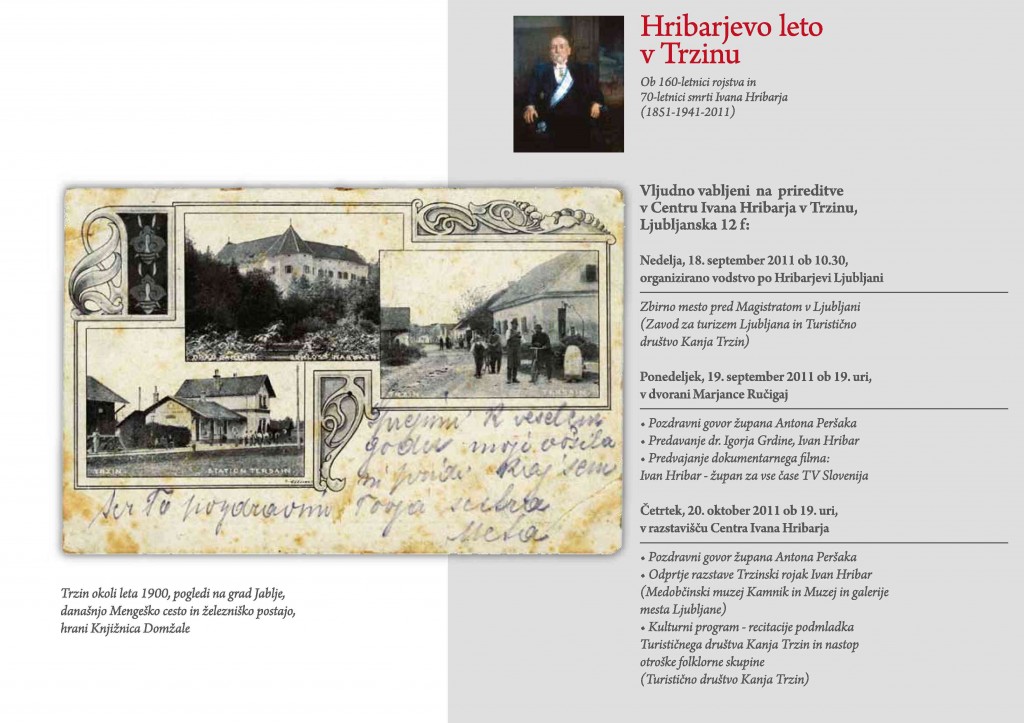 Hribarjevo leto
v Trzinu
Ob 160-letnici rojstva in
70-letnici smrti Ivana Hribarja
(1851-1941-2011)
Vljudno vabljeni na prireditve
v Centru Ivana Hribarja v Trzinu,
Ljubljanska 12 f:
Nedelja, 18. september 2011 ob 10.30,
organizirano vodstvo po Hribarjevi Ljubljani
Zbirno mesto pred Magistratom v Ljubljani
(Zavod za turizem Ljubljana in Turistično
društvo Kanja Trzin)
Ponedeljek, 19. september 2011 ob 19. uri,
v dvorani Marjance Ručigaj
• Pozdravni govor župana Antona Peršaka
• Predavanje dr. Igorja Grdine, Ivan Hribar
• Predvajanje dokumentarnega filma:
Ivan Hribar - župan za vse čase TV Slovenija
Četrtek, 20. oktober 2011 ob 19. uri,
v razstavišču Centra Ivana Hribarja
• Pozdravni govor župana Antona Peršaka
• Odprtje razstave Trzinski rojak Ivan Hribar
(Medobčinski muzej Kamnik in Muzej in galerije
mesta Ljubljane)
• Kulturni program - recitacije podmladka
Turističnega društva Kanja Trzin in nastop
otroške folklorne skupine
(Turistično društvo Kanja Trzin)
SCHLOSS HABBACH
TRZIN TERSAIN
TRZIN STATION TERSAIN
Sprejmi k veselem
godu moja voščila
pozdravim Tvoja sestra
Trzin okoli leta 1900, pogledi na grad Jablje,
današnjo Mengeško cesto in železniško postajo,
hrani Knjižnica Domžale